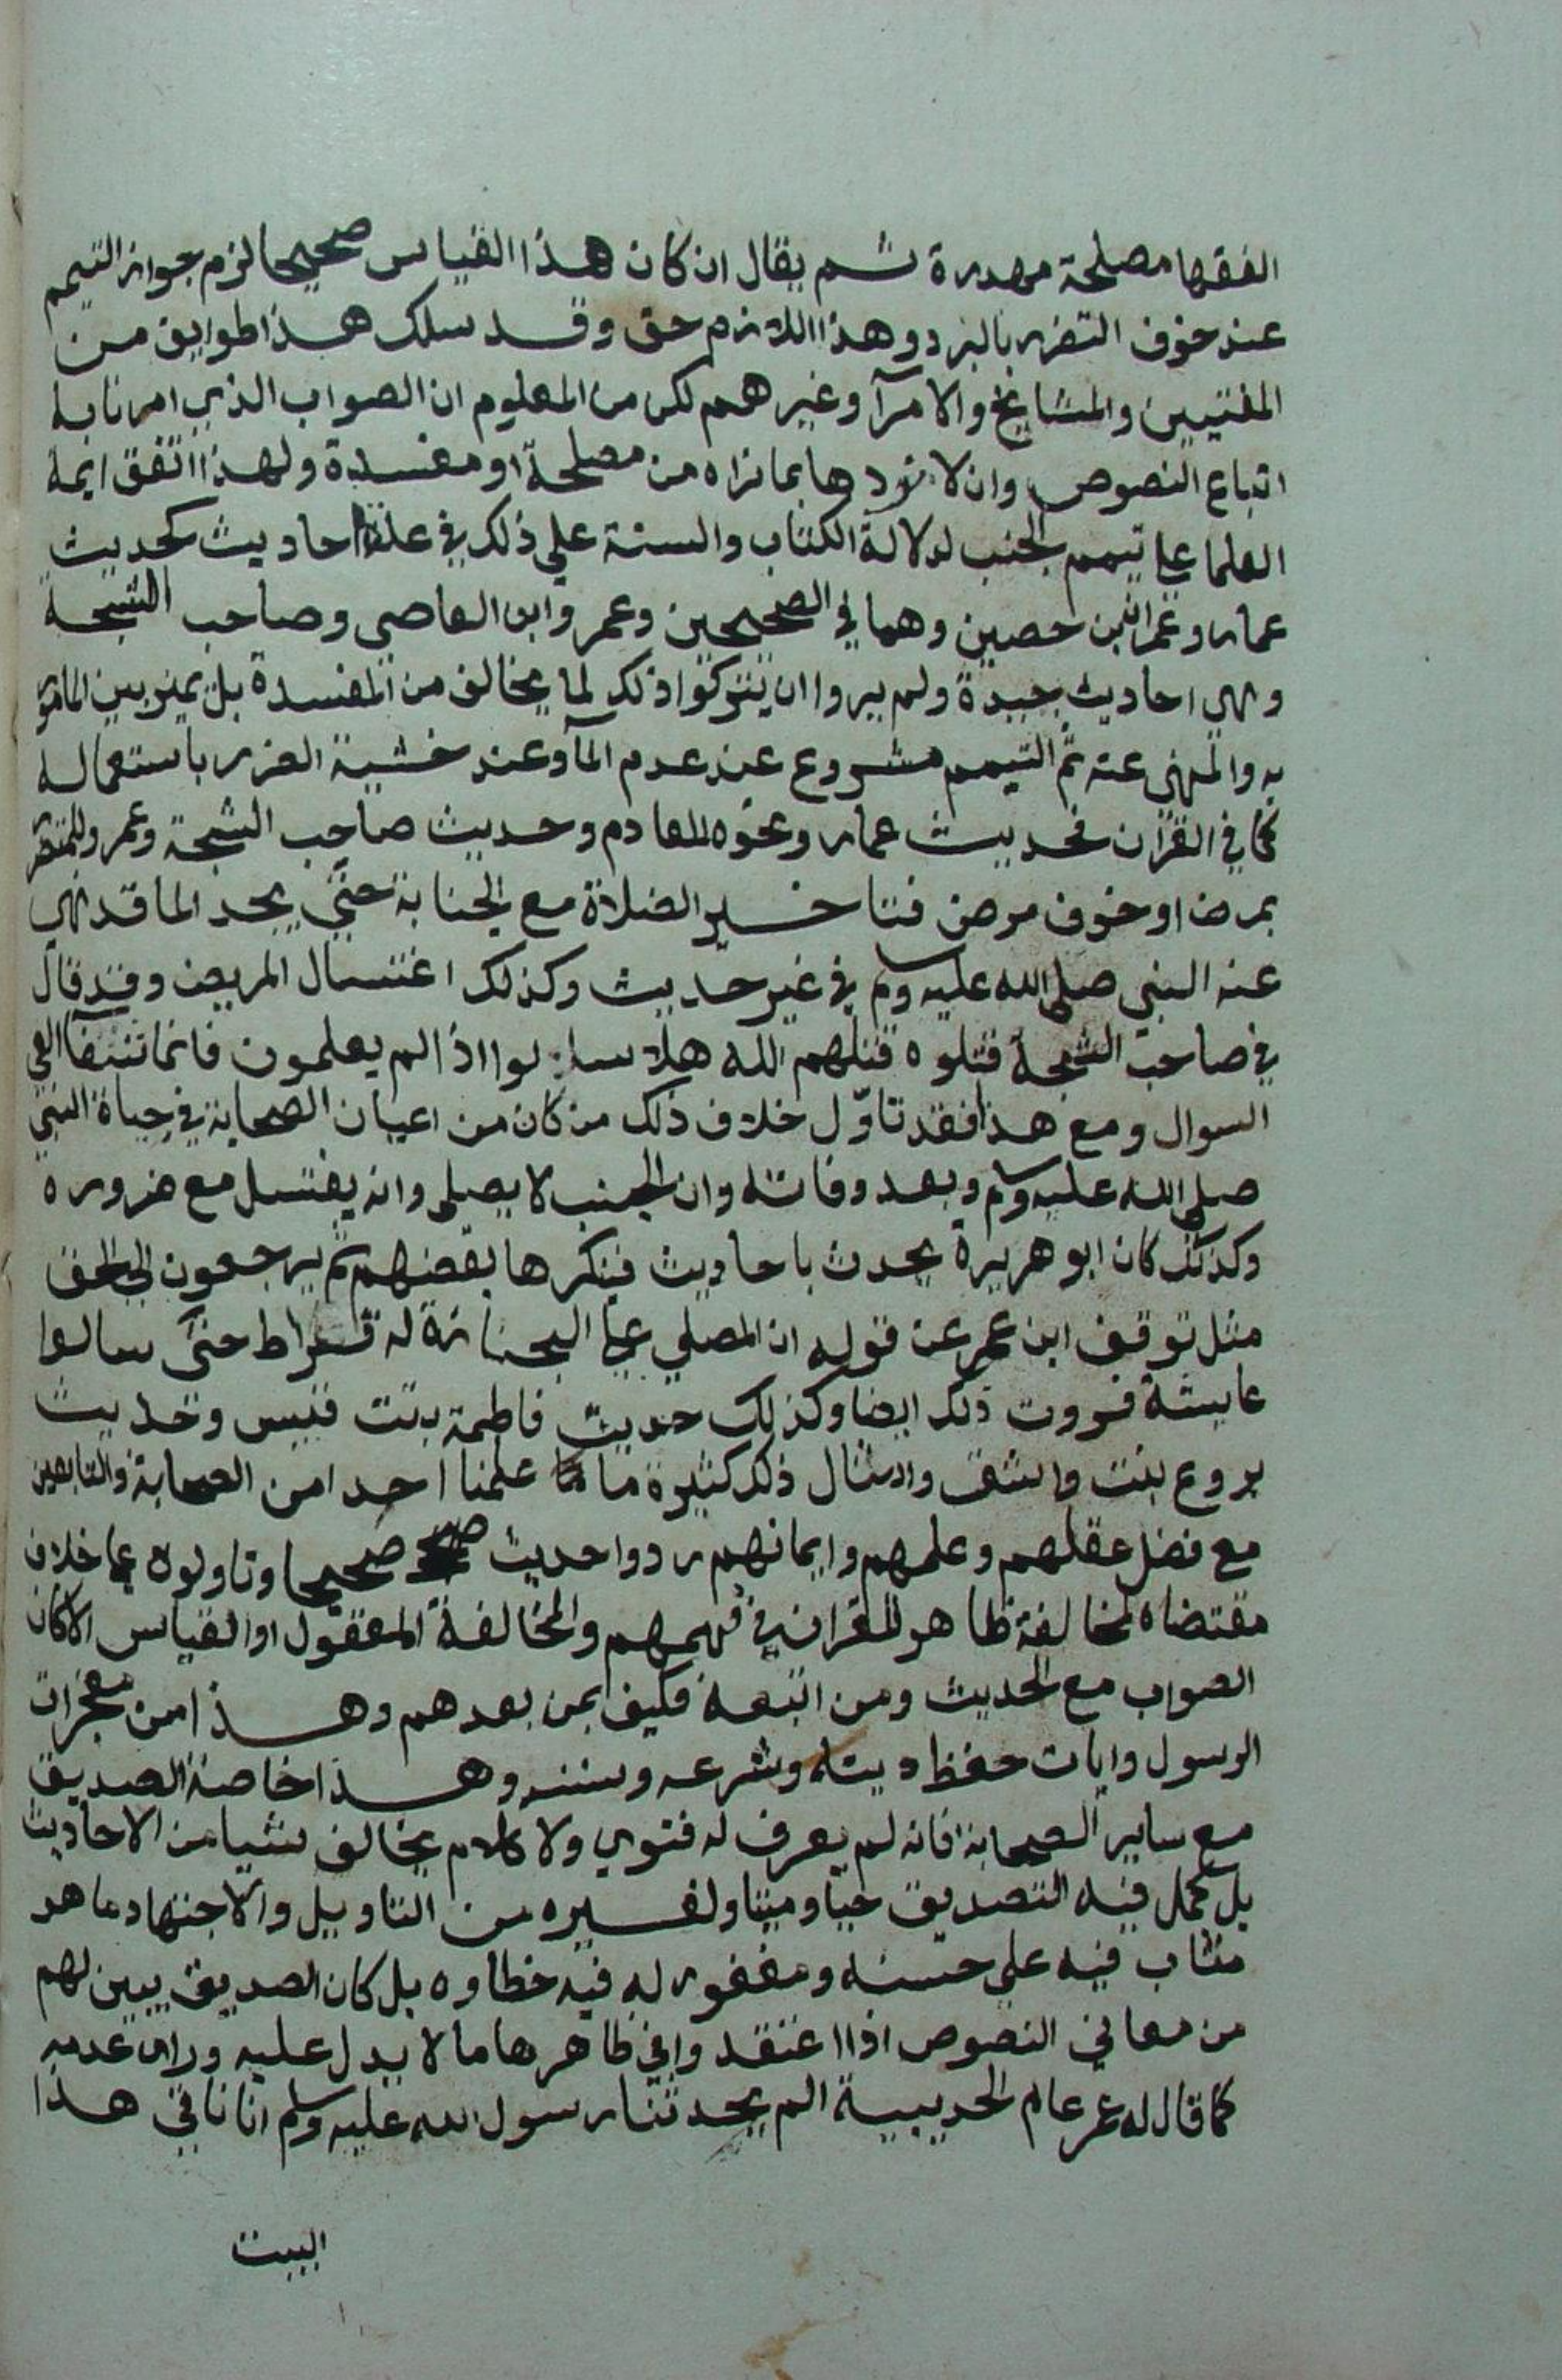 الفقها مصلحة مهدرة ثم يقال ان كان هذا القياس صحيحا لزم جواز التيمم
عند خوف التضرر بالبرد وهذا اللازم حق وقد سلك هذا طوايف من
المفتيين والمشايخ والامرآ وغيرهم لكن من المعلوم ان الصواب الذي امرنا به
اتباع النصوص وان لا نردها بما نراه من مصلحة او مفسدة ولهذا اتفق ايمة
العلما علي تيمم الجنب لدلالة الكتاب والسنة علي ذلك في علة احاديث كحديث
عمار وعمران بن حصين وهما في الصحيحين وعمر وابن العاصي وصاحب الشجة
وهي احاديث جيدة ولم يروا ان يتركوا ذلك لما يخالف من المفسدة بل يميز بين المامور
به والمنهي عنه ثم التيمم مشروع عند عدم المآ وعند خشية الضرر باستعماله
كما في القران فحديث عمار ونحوه للعادم وحديث صاحب الشجة وعمر وللمتضرر
بمرض او خوف مرض فتاخير الصلاة مع الجنابة حتي يجد الما قد نهي
عنه النبي صلي الله عليه وسلم في غير حديث وكذلك اغتسال المريض وقد قال
في صاحب الشجة قتلوه قتلهم الله هلا سالوا اذا لم يعلمون فانما شفآ العي
السوال ومع هذا فقد تاوّل خلاف ذلك من كان من اعيان الصحابة في حياة النبي
صلي الله عليه وسلم وبعد وفاته وان الجنب لا يصلي وانه يغتسل مع ضروره
وكذلك كان ابو هريرة يحدث باحاديث فينكرها بعضهم ثم يرجعون الي الحق
مثل توقف ابن عمر عن قوله ان المصلي علي الجنازة له قيراط حتى سالوا
عايشة فروت ذلك ايضا وكذلك حديث فاطمة بنت قيس وحديث
بروع بنت واشق وامثال ذلك كثيرة ما علمنا احدا من الصحابة والتابعين
مع فضل عقلهم وعلمهم وايمانهم ردوا حديث صحيحا وتاولوه علي خلاف
مقتضاه لمخالفة ظاهر للقران في فهمهم والمخالفة المعقول او القياس الا كان
الصواب مع الحديث ومن اتبعه فكيف بمن بعدهم وهذا من معجزات
الرسول وايات حفظ دينه وشرعه وسننه وهذا خاصة الصديق
مع ساير الصحابة فانه لم يعرف له فتوي ولا كلام يخالف شيا من الاحاديث
بل كمل فيه التصديق حيا وميتا ولغيره من التاويل والاجتهاد ما هو
مثاب فيه علي حسنه ومغفور له فيه خطاوه بل كان الصديق يبين لهم
من معاني النصوص اذا اعتقدوا في ظاهرها ما لا يدل عليه وراي عدمه
كما قال له عمر عام الحديبية الم يحدثنا رسول الله عليه وسلم انا ناتي هذا
البيت